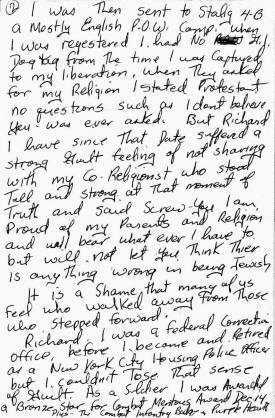 I was Then sent to Stalig 4-B
a Mostly English P.O.W. Camp. when
I was regestered I had No G.I.
Dog tag from the time I was Captured
to my liberation. when They asked
for my Religion I stated Protestant
no questions such as I dont believe
you was ever asked. But Richard
I have since That Date suffered a
strong Guilt feeling of not sharing
with my Co-Religionist who stood
Tall and strong at That moment of
Truth and said Screw-You I am
Proud of my Parents and Religion
and will bear what ever I have to
but will not let you Think Thier
is anyThing wrong in being Jewish
It is a Shame that many of us
Feel who walked away from Those
who stepped forward.
Richard, I was a Federal Correction
office, before I became and Retired
as a New York City Housing Police Officer
but I couldn't lose That sense
of Guilt. As a Soldier I was Awarded
a Bronze Star for Combat Meritous Award Dec. 14,
Combat Infantry Badge Purple Heart